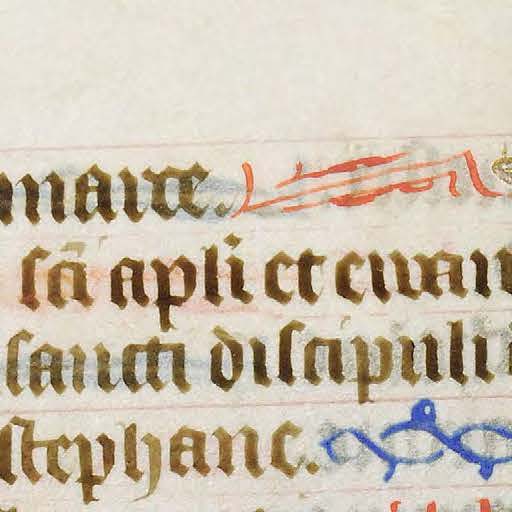 sc̄i apl̄i et euan
sancti discipuli
stephane.